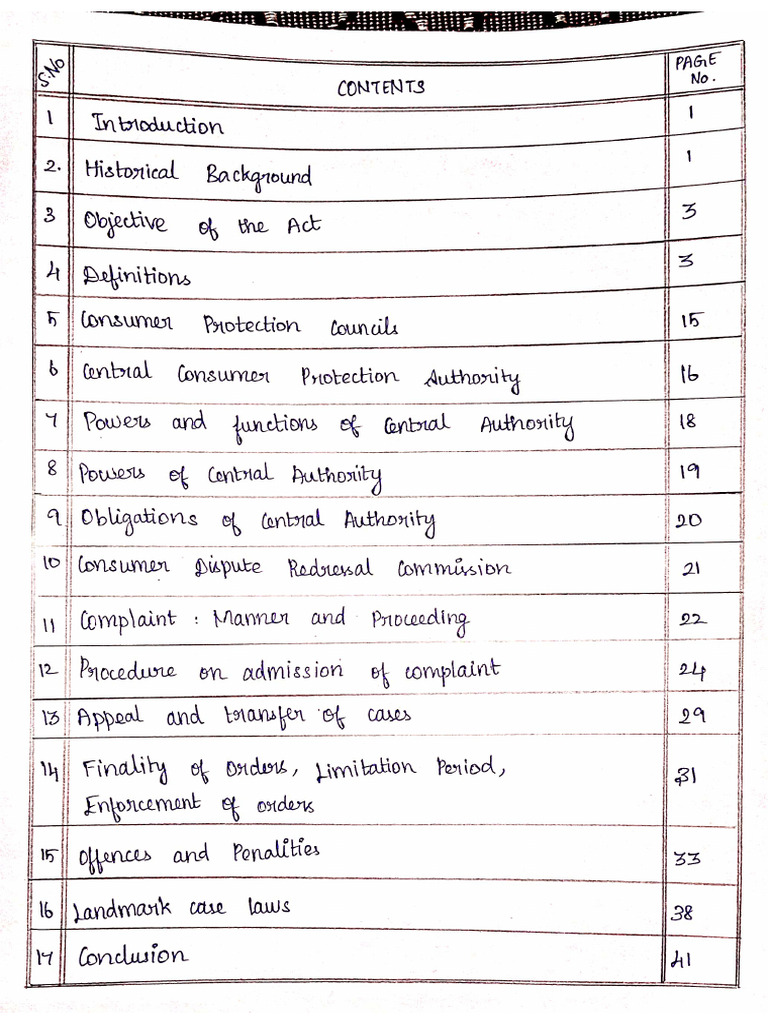 S.No CONTENTS PAGE No.
1 Introduction 1
2. Historical Background 1
3 Objective of the Act 3
4 Definitions 3
5 Consumer Protection Councils 15
6 Central Consumer Protection Authority 16
7 Powers and functions of Central Authority 18
8 Powers of Central Authority 19
9 Obligations of Central Authority 20
10 Consumer Dispute Redressal Commission 21
11 Complaint : Manner and Proceeding 22
12 Procedure on admission of complaint 24
13 Appeal and transfer of cases 29
14 Finality of orders, Limitation Period, 31
Enforcement of orders
15 Offences and Penalities 33
16 Landmark case laws 38
17 Conclusion 41